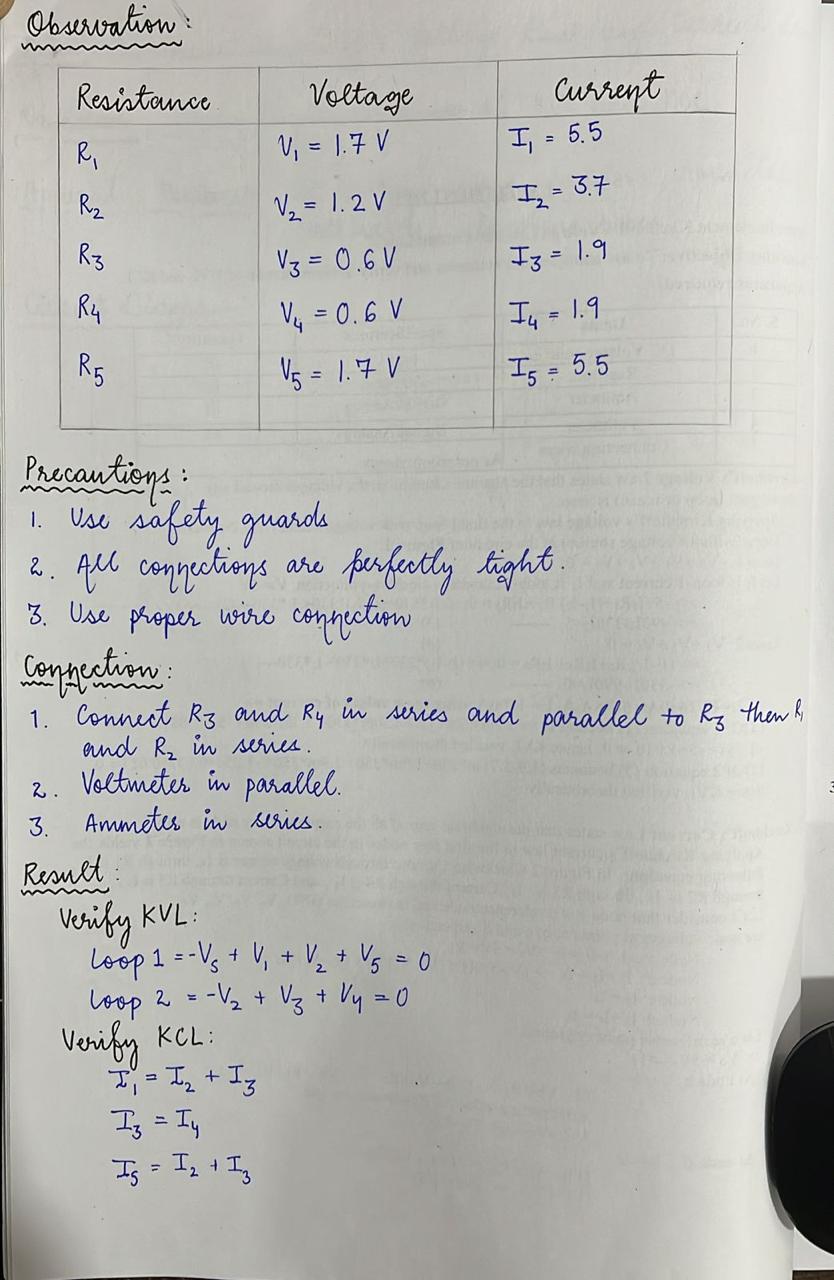 Observation:
Resistance Voltage Current
R₁ V₁ = 1.7 V I₁ = 5.5
R₂ V₂ = 1.2 V I₂ = 3.7
R₃ V₃ = 0.6 V I₃ = 1.9
R₄ V₄ = 0.6 V I₄ = 1.9
R₅ V₅ = 1.7 V I₅ = 5.5
Precautions:
1. Use safety guards
2. All connections are perfectly tight.
3. Use proper wire connection
Connection:
1. Connect R₃ and R₄ in series and parallel to R₃ then R₁
and R₂ in series.
2. Voltmeter in parallel.
3. Ammeter in series.
Result:
Verify KVL:
Loop 1 = -Vs + V₁ + V₂ + V₅ = 0
Loop 2 = -V₂ + V₃ + V₄ = 0
Verify KCL:
I₁ = I₂ + I₃
I₃ = I₄
I₅ = I₂ + I₃